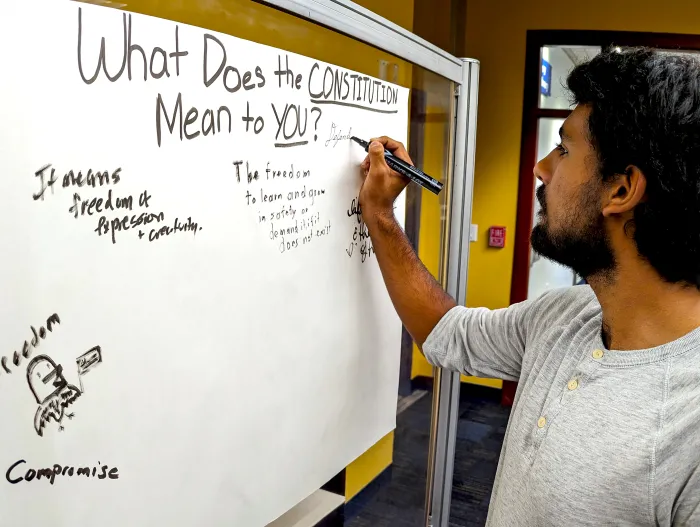 What Does the CONSTITUTION
Mean to YOU?
It means
freedom of
Expression
+ creativity.
The freedom
to learn and grow
in safety or
demand it if it
does not exist
reedom
Compromise
FIRE